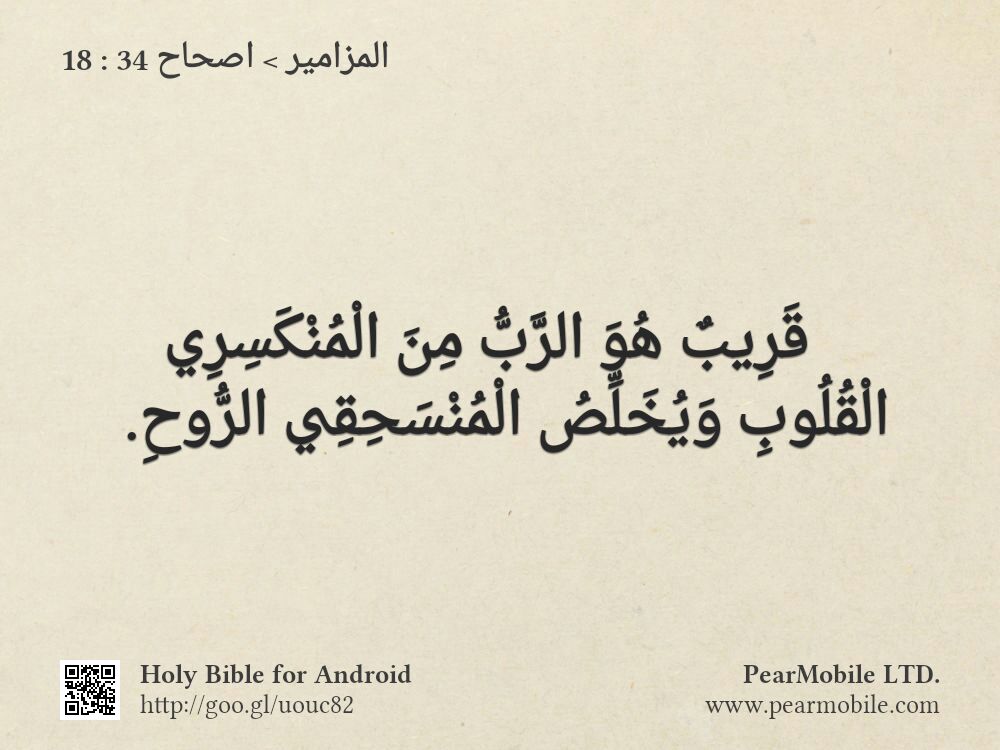 المزامير > اصحاح 34 : 18
قَرِيبٌ هُوَ الرَّبُّ مِنَ الْمُنْكَسِرِي
الْقُلُوبِ وَيُخَلِّصُ الْمُنْسَحِقِي الرُّوحِ.
Holy Bible for Android
http://goo.gl/uouc82
PearMobile LTD.
www.pearmobile.com